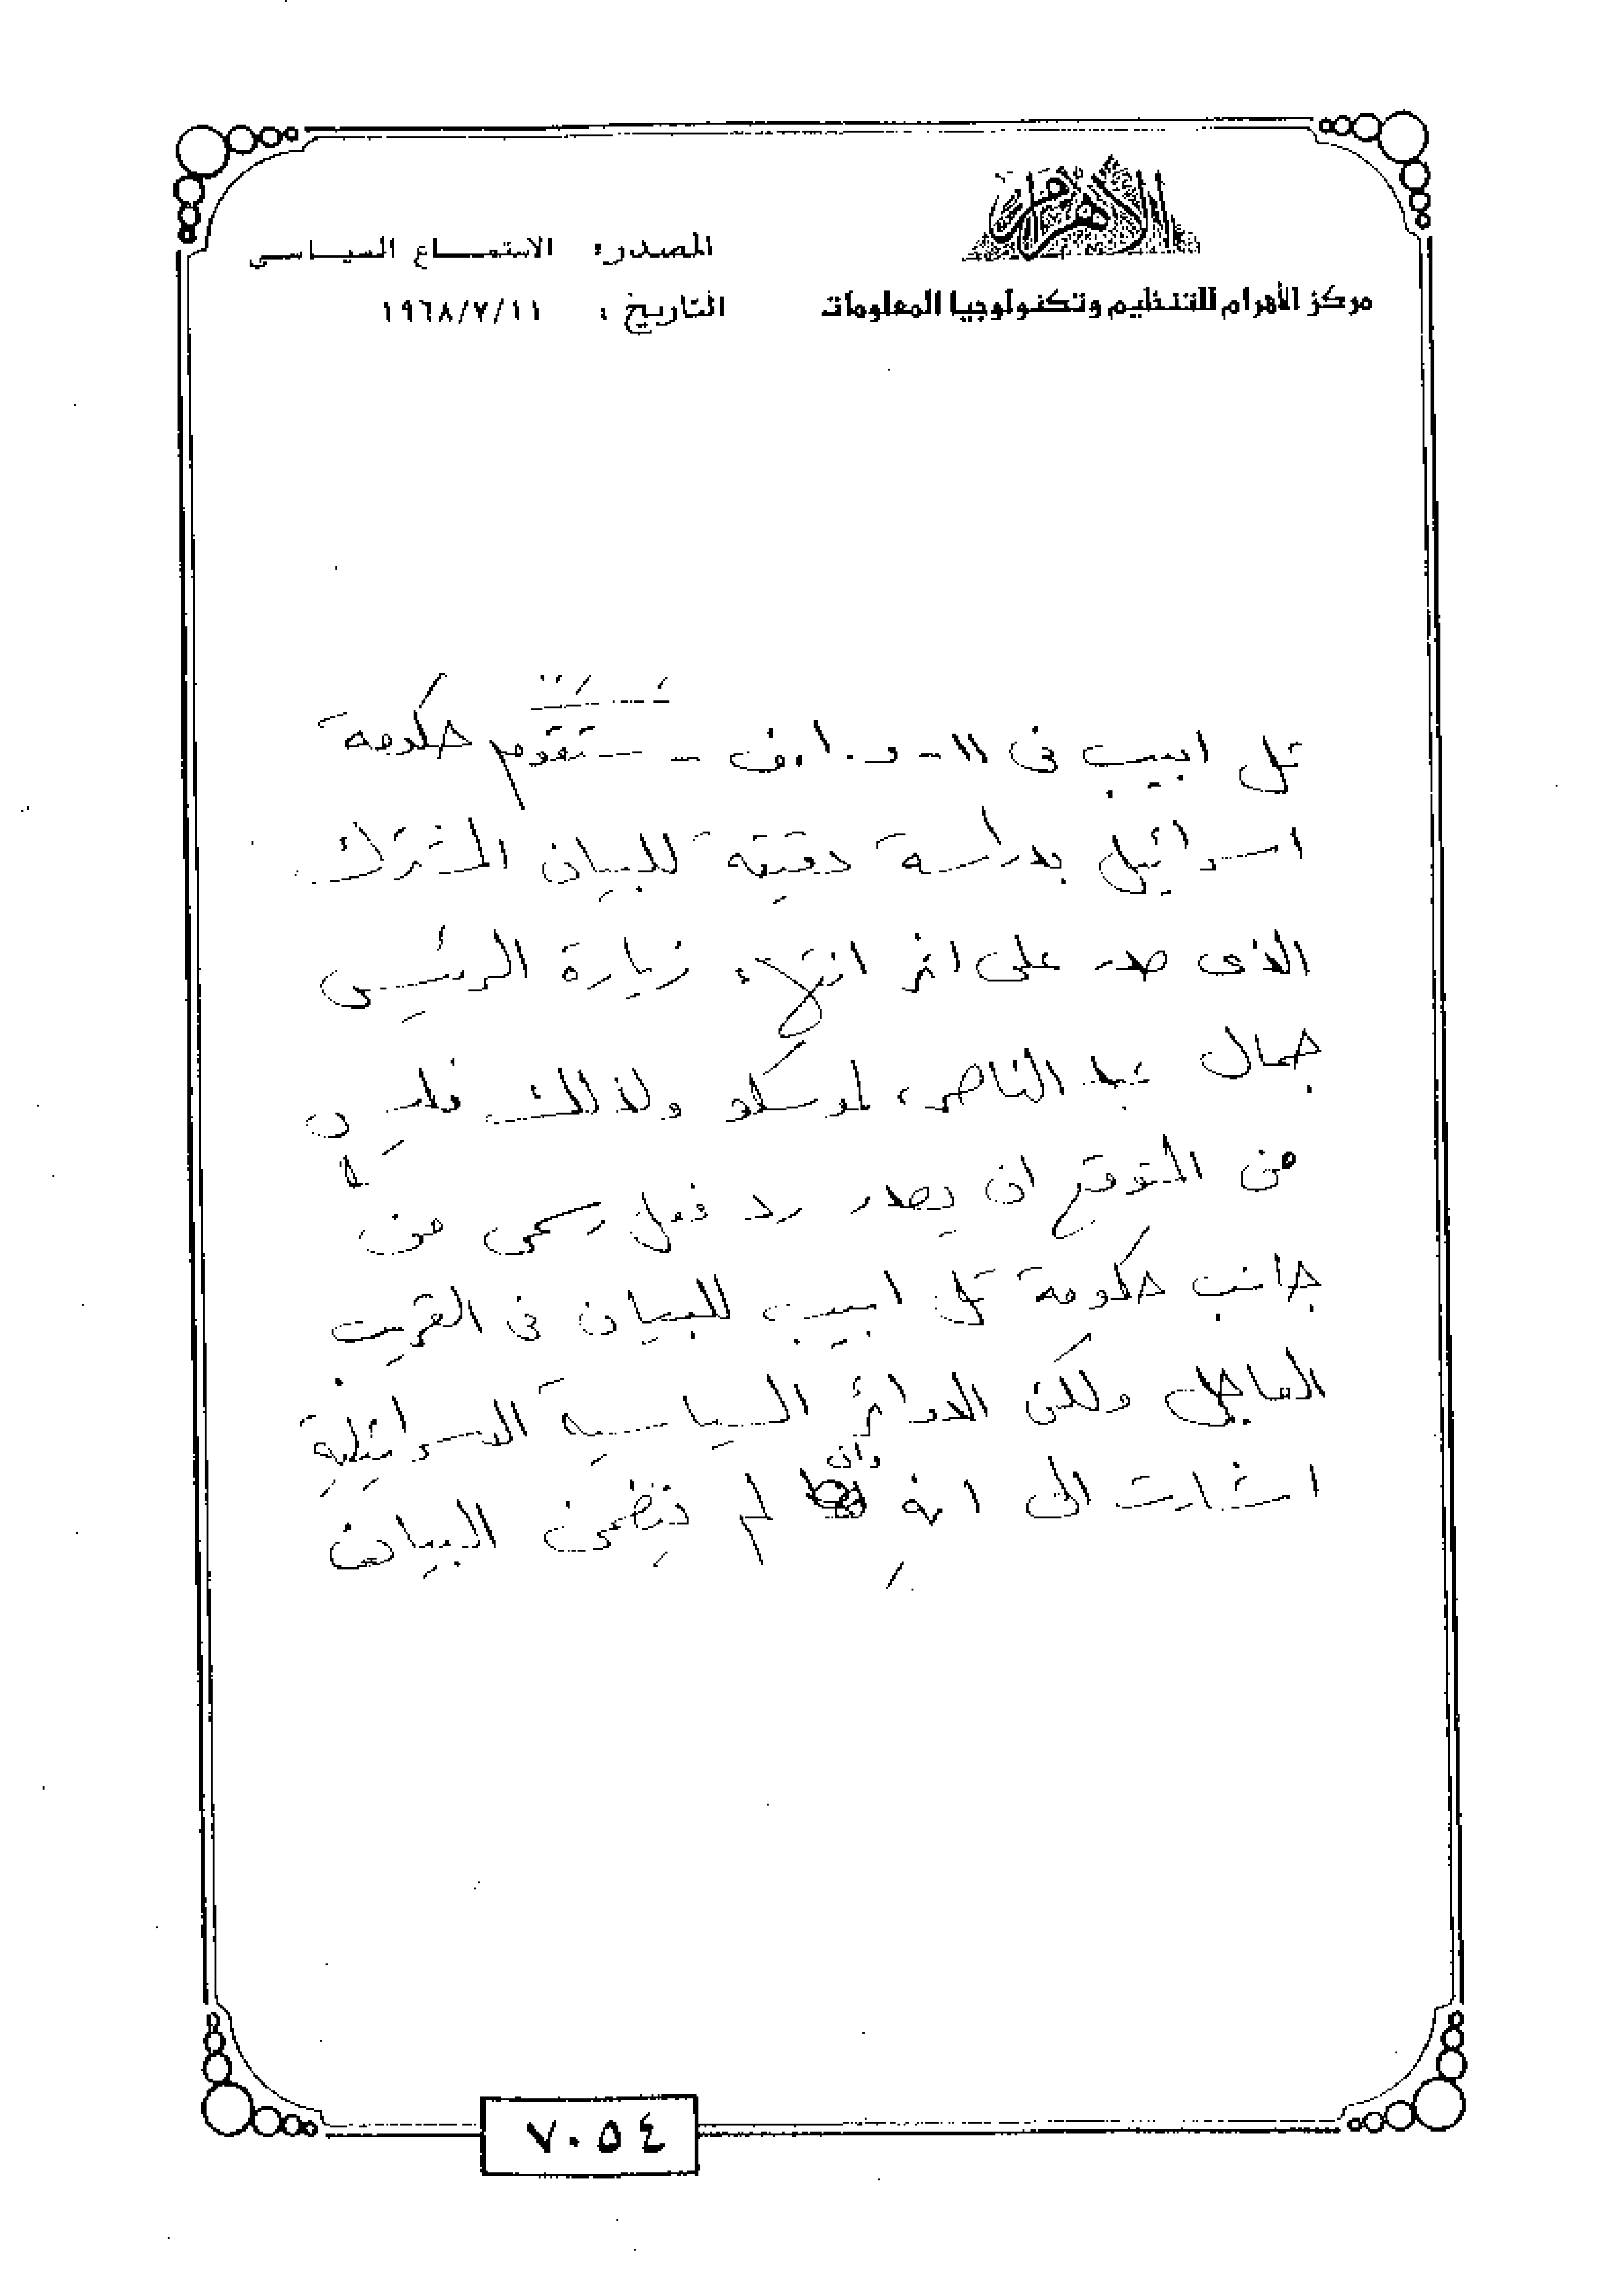 الأهرام
مركز الأهرام للتنظيم وتكنولوجيا المعلومات
المصدر: الاستماع السياسى
التاريخ: ١٩٦٨/٧/١١
تل ابيب فى ١١ - و.ا.ف - ستقوم حكومة
اسرائيل بدراسة دقيقة للبيان المشترك
الذى صدر على اثر انتهاء زيارة الرئيس
جمال عبد الناصر، لموسكو ولذلك فليس
من المتوقع ان يصدر رد فعل رسمى من
جانب حكومة تل ابيب للبيان فى القريب
العاجل ولكن الدوائر السياسية الاسرائيلية
اشارت الى انه وان لم يتضمن البيان
٧٠٥٤